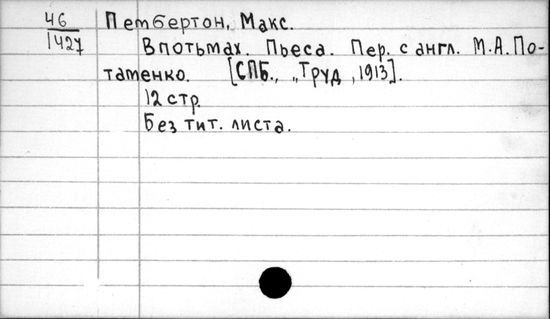 46
1427
Пембертон, Макс.
Впотьмах. Пьеса. Пер. с англ. М.А. По-
таменко. [СПБ., „Труд, 1913].
12 стр.
Без тит. листа.